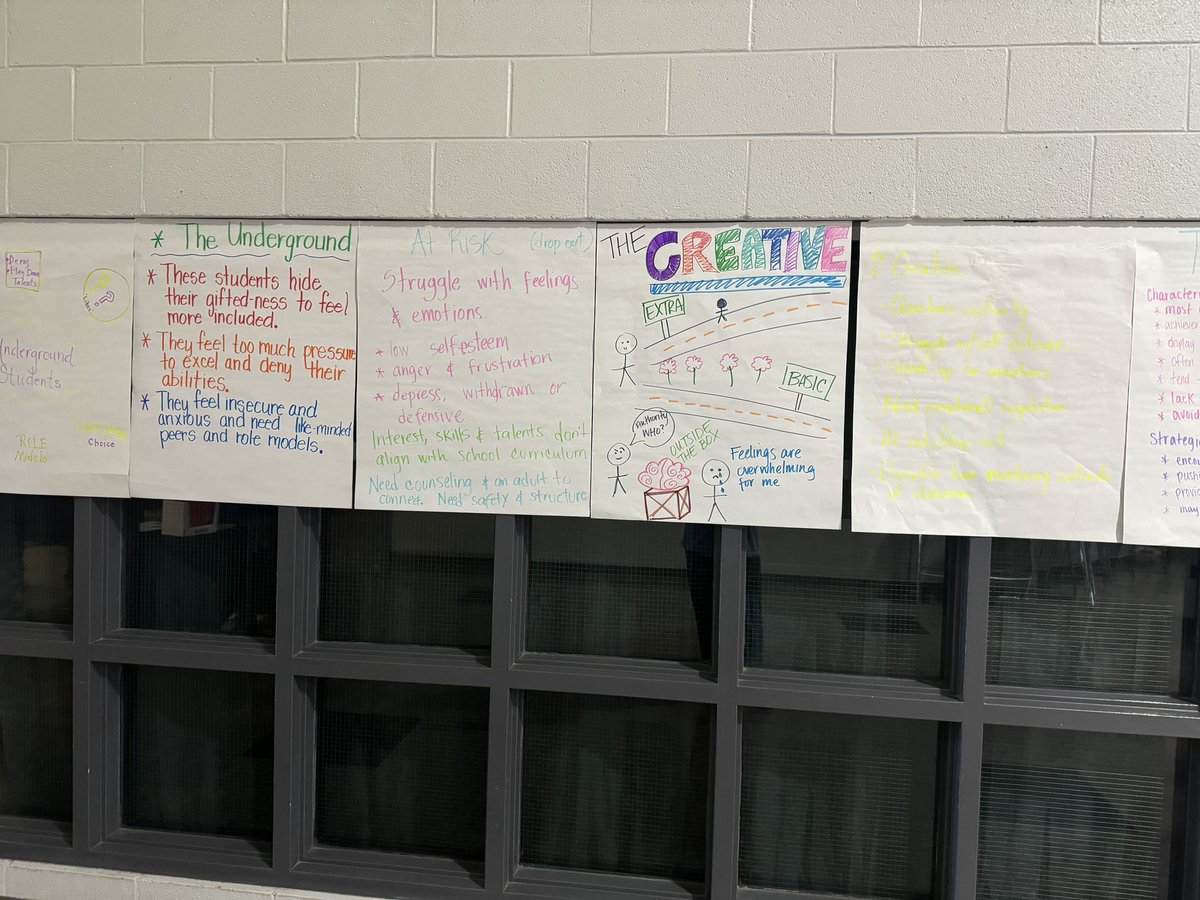 Deny
Play Down
Talents
Underground
Students
ROLE
Models
Choice
* The Underground
* These students hide
their gifted-ness to feel
more included.
* They feel too much pressure
to excel and deny their
abilities.
* They feel insecure and
anxious and need like-minded
peers and role models.
At Risk (drop out)
Struggle with feelings
& emotions.
* low selfesteem
* anger & frustration
* depress, withdrawn or
defensive
Interest, skills & talents don't
align with school curriculum
Need counseling & an adult to
connect. Need safety & structure
THE CREATIVE
EXTRA
BASIC
Authority
WHO?
OUTSIDE
THE BOX
Feelings are
overwhelming
for me
2 Creative
Questions authority
Struggle w/self esteem
Need emotional regulation
At risk/drop out
Character
* most
* achieve
* display
* often
* tend
* lack
* avoid
Strategi
* encou
* pushi
* provi
* may